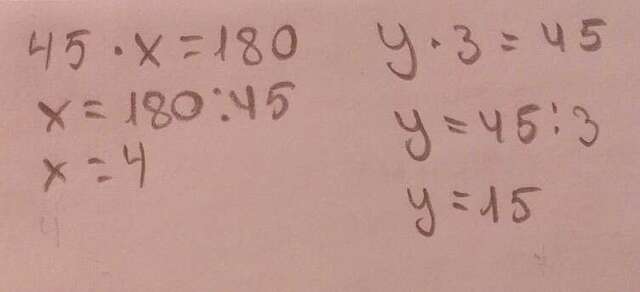 45 · x = 180
x = 180 : 45
x = 4
y · 3 = 45
y = 45 : 3
y = 15